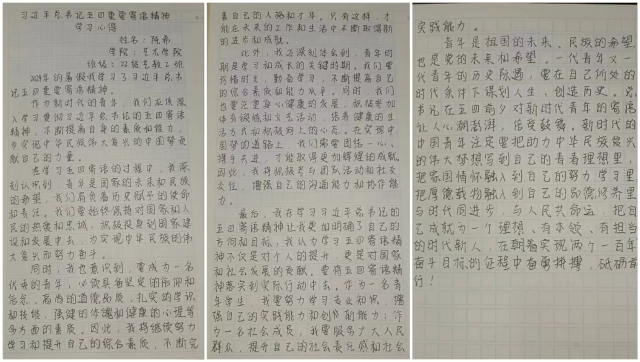 习近平总书记五四重要寄语精神
学习心得
姓名：陈希
学院：艺术学院
班级：22绘艺教2班
2024年的暑假我学习了习近平总书
记五四重要寄语精神。
作为新时代的青年，我们应该深
入学习贯彻习近平总书记的五四寄语
精神，不断提高自身的素质和能力，
为实现中华民族伟大复兴的中国梦贡
献自己的力量。
在学习五四寄语的过程中，我深
刻认识到，青年是国家的未来和民族
的希望，我们肩负着历史赋予的使命
和责任。我们要始终保持对国家和人
民的热爱和忠诚，积极投身到国家建
设和发展中去，为实现中华民族的伟
大复兴而努力奋斗。
同时，我也意识到，要成为一名
优秀的青年，必须具备坚定的理想和
信念，高尚的道德品质，扎实的学识
和技能，强健的体魄和健康的心理等
多方面的素质。因此，我将继续努力
学习和提升自己的综合素质，不断完
善自己的人格和才华。只有这样，才
能在未来的工作和生活中不断取得新
的进步和成就。
此外，我还深刻体会到，青年时
期是学习和成长的关键时期。我们要
珍惜时光，勤奋学习，不断提高自己
的综合素质和能力水平。同时，我们
也要注重身心健康的发展，积极参加
体育锻炼和文艺活动，培养健康的生
活方式和积极向上的心态。在实现中国
梦的道路上，我们需要团结一心、
携手共进，才能取得更加辉煌的成就。
因此，我将积极参与团队活动和社交
交往，增强自己的沟通能力和协作能
力。
最后，我在学习习近平总书记的
五四寄语精神让我更加明确了自己的
方向和目标，我认为学习五四寄语精
神不仅是对个人的提升，更是对国家
和社会发展的贡献。要将五四寄语精
神落实到实际行动中去。作为一名青
年学生，我要努力学习专业知识，增
强自己的实践能力和创新能力；作
为一名社会成员，我要服务广大人民
群众，提升自己的社会责任感和社会
实践能力。
青年是祖国的未来、民族的希望，
也是党的未来和希望。一代青年又一
代青年的历史际遇，要在自己所处的
时代条件下谋划人生、创造历史。总
书记在五四前夕对新时代青年的寄语
让人心潮澎湃，倍受鼓舞。新时代的
中国青年注定要把助力中华民族复兴
的伟大梦想写到自己的青春理想里，
把家国情怀融入到自己的努力学习里，
把厚德载物融入到自己的品德修养里，
与时代同进步，与人民共命运，把自
己成就为一个有理想、有本领、有担当
的时代新人，在朝着实现两个一百年
奋斗目标的征程中奋勇拼搏，砥砺前
行！